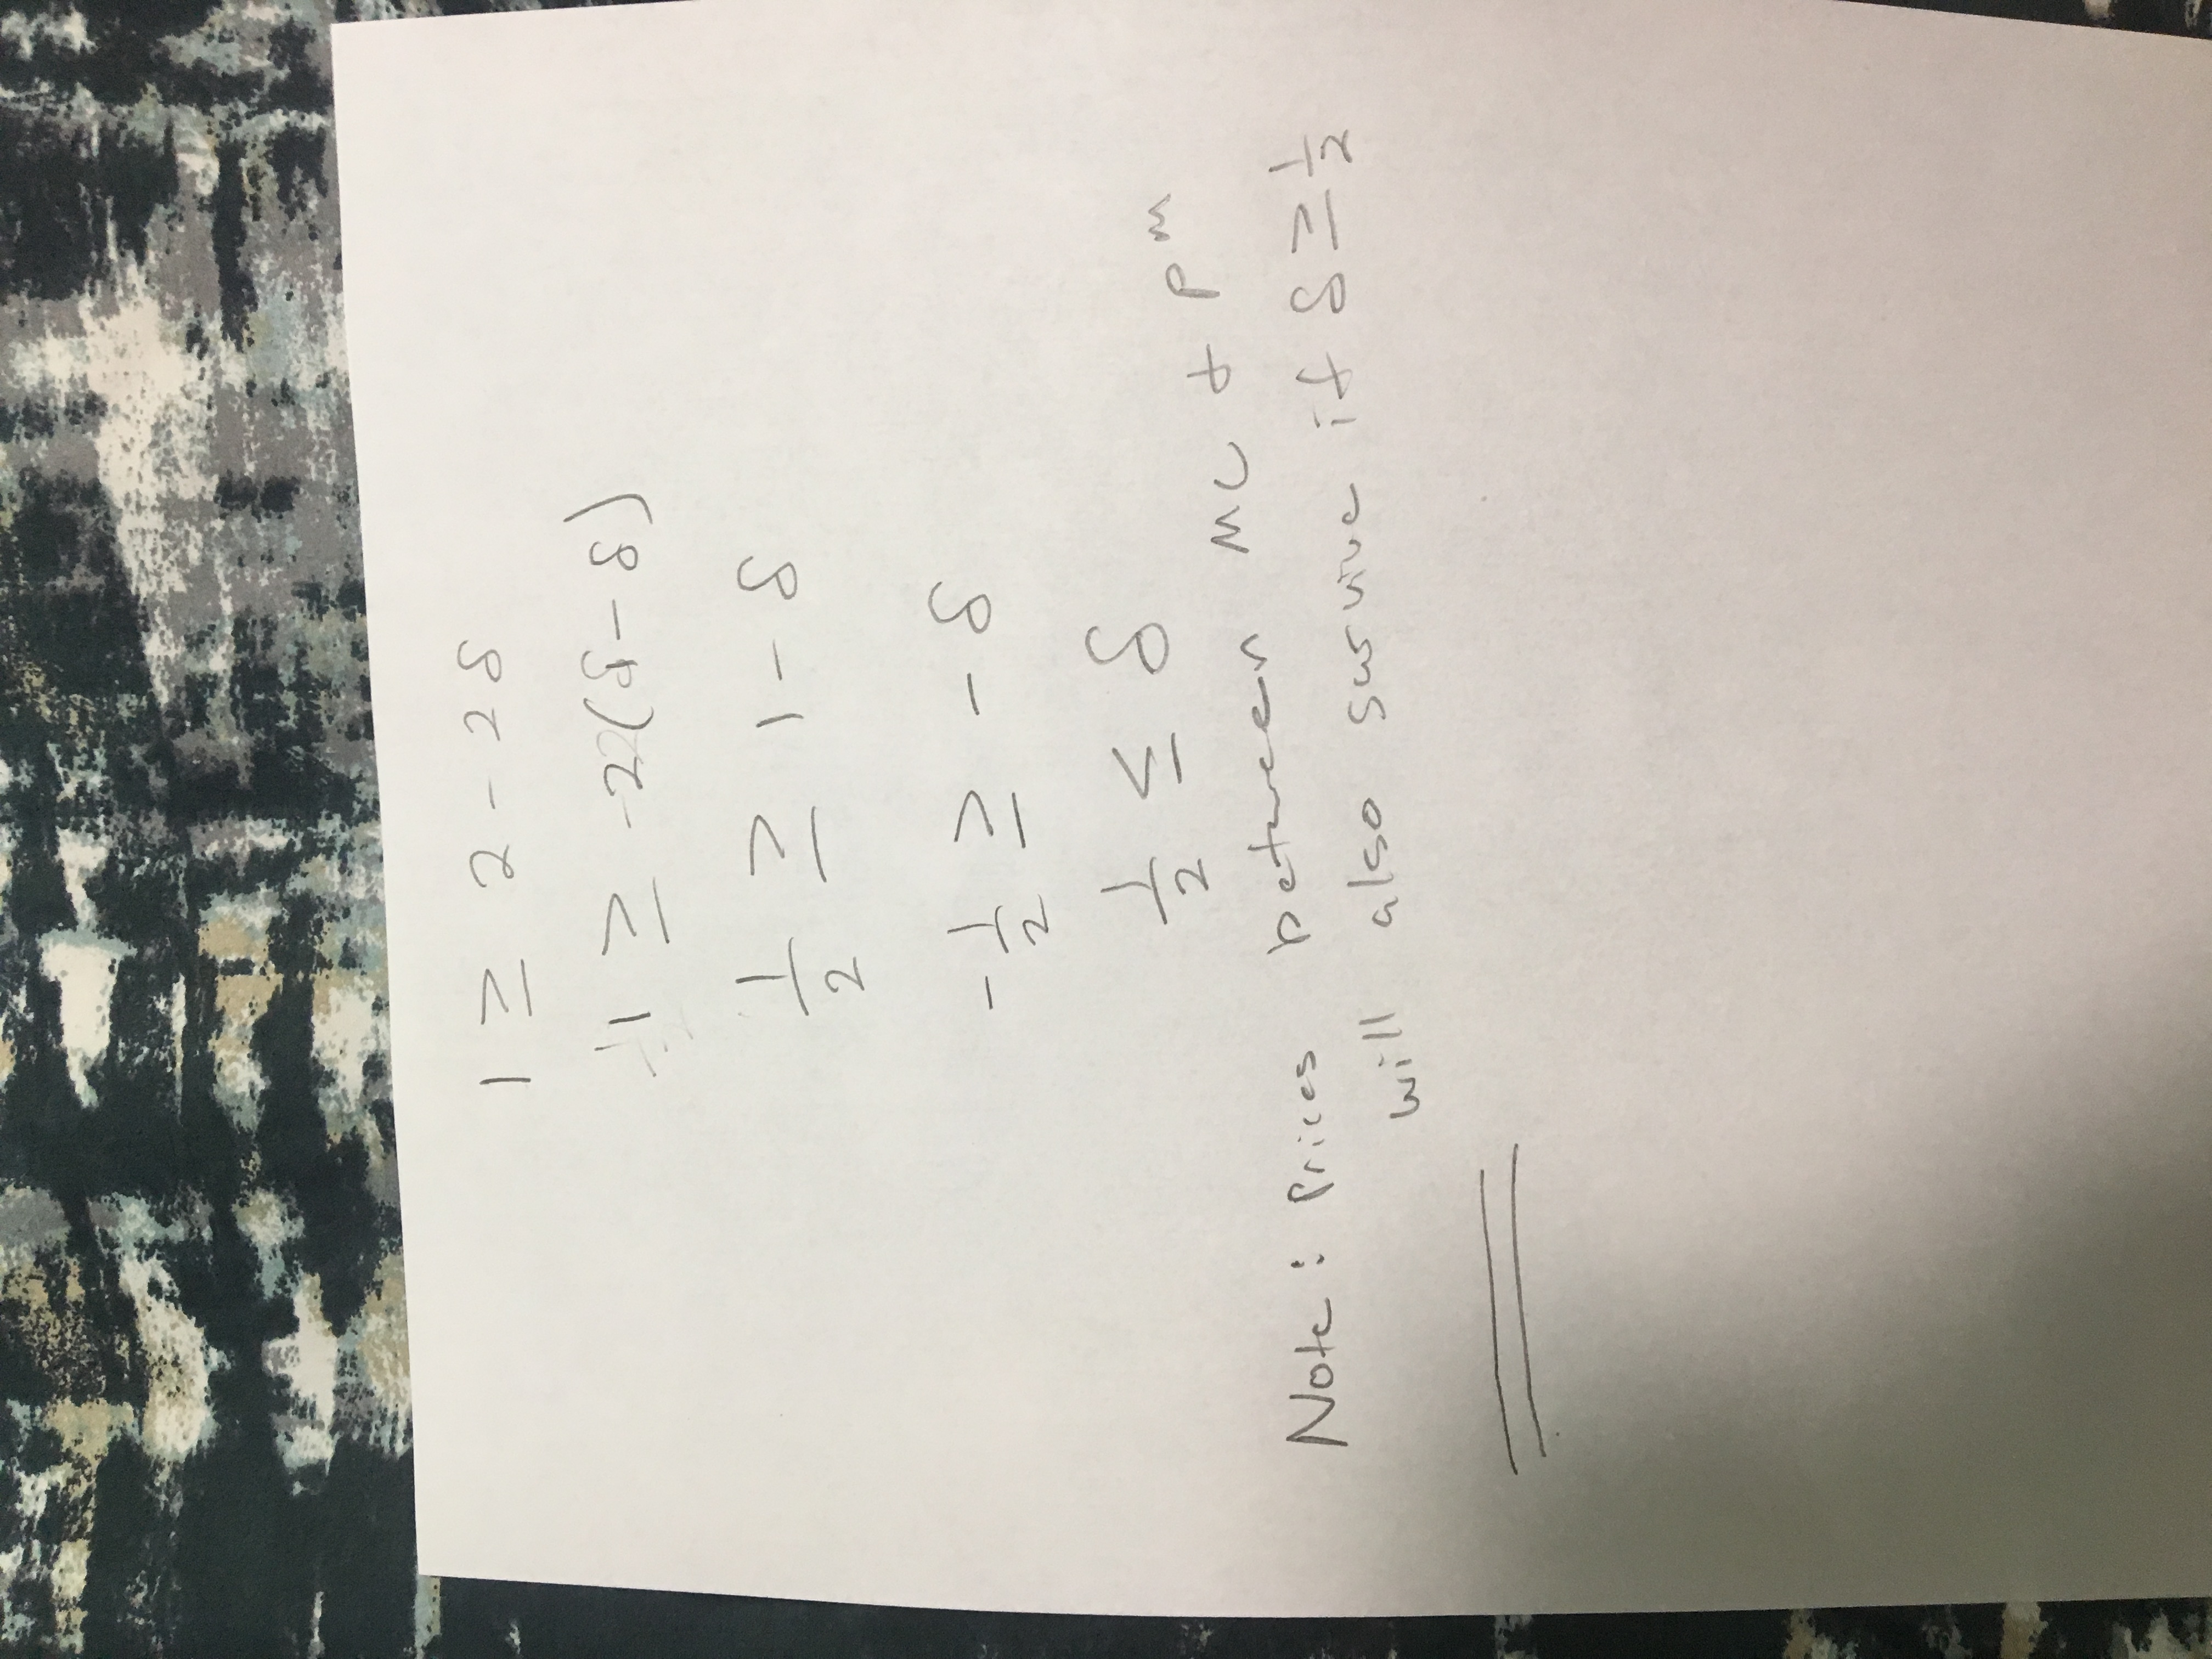 1 ≥ 2 - 2δ
1 ≥ -2(δ - δ)
1/2 ≥ 1 - δ
-1/2 ≥ - δ
1/2 ≤ δ
Note: Prices between MC + P^M
will also survive if δ ≥ 1/2